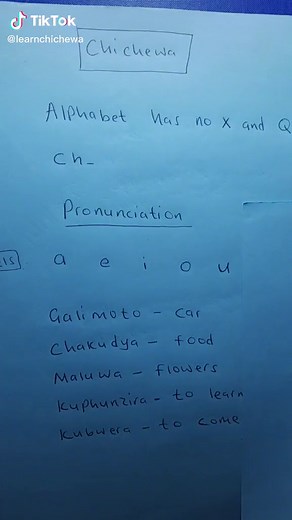 TikTok
@learnchichewa
Chichewa
Alphabet has no X and Q
Ch_
Pronunciation
a e i o u
Galimoto - car
Chakudya - food
Maluwa - flowers
Kuphunzira - to learn
Kubwera - to come